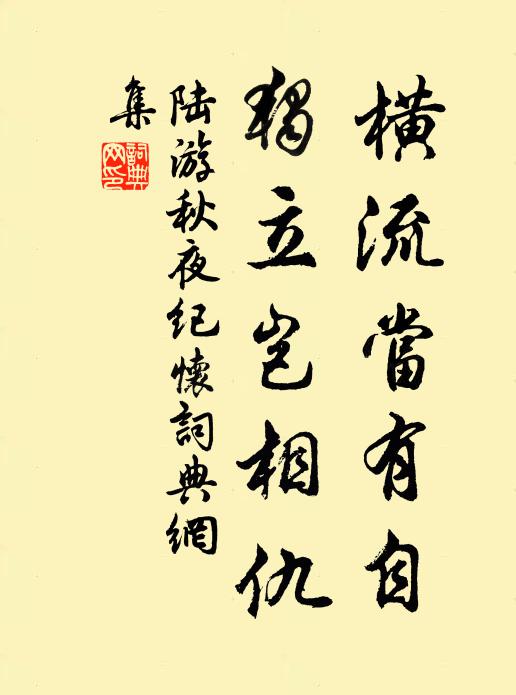 橫流當有自
獨立豈相仇
陆游秋夜纪懷詞典網
集
詞典網印